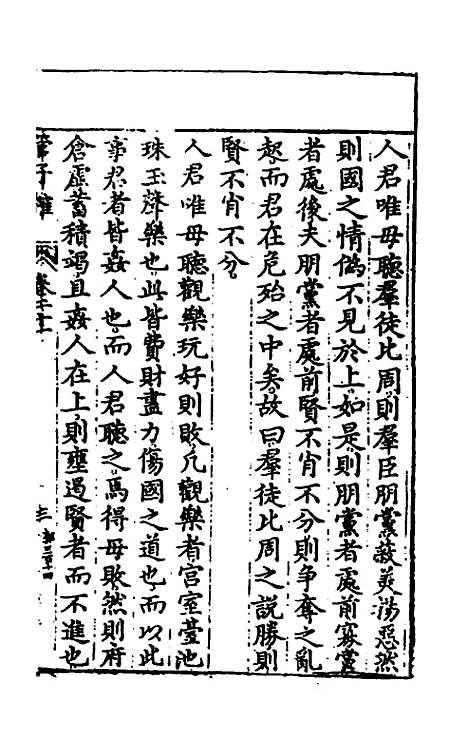 人君唯毋聽羣徒比周則羣臣朋黨蔽美揚惡然
則國之情偽不見於上如是則朋黨者處前寡黨
者處後夫朋黨者處前賢不肖不分則争奪之亂
起而君在危殆之中矣故曰羣徒比周之説勝則
賢不肖不分
人君唯毋聽觀樂玩好則敗凡觀樂者宫室臺池
珠玉聲樂也此皆費財盡力傷國之道也而以此
事君者皆姦人也而人君聽之焉得毋敗然則府
倉虚蓄積竭且姦人在上則壅遏賢者而不進也